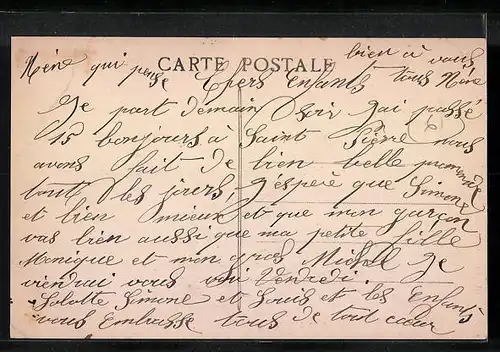 Mère qui pense CARTE POSTALE bien à vous
Chers Enfants tous Mère
Je part demain soir j'ai passé
15 bonjours à Saint Pierre nous
avons fait de bien belle promenade
tout les jours, j'espère que Simone
et bien mieux et que mon garçon
vas bien aussi que ma petite fille
Monique et mon gros Michel Je
viendrai vous voir Vendredi.
Lolotte Simone et Louis et les Enfants
vous Embrasse tous de tout cœur